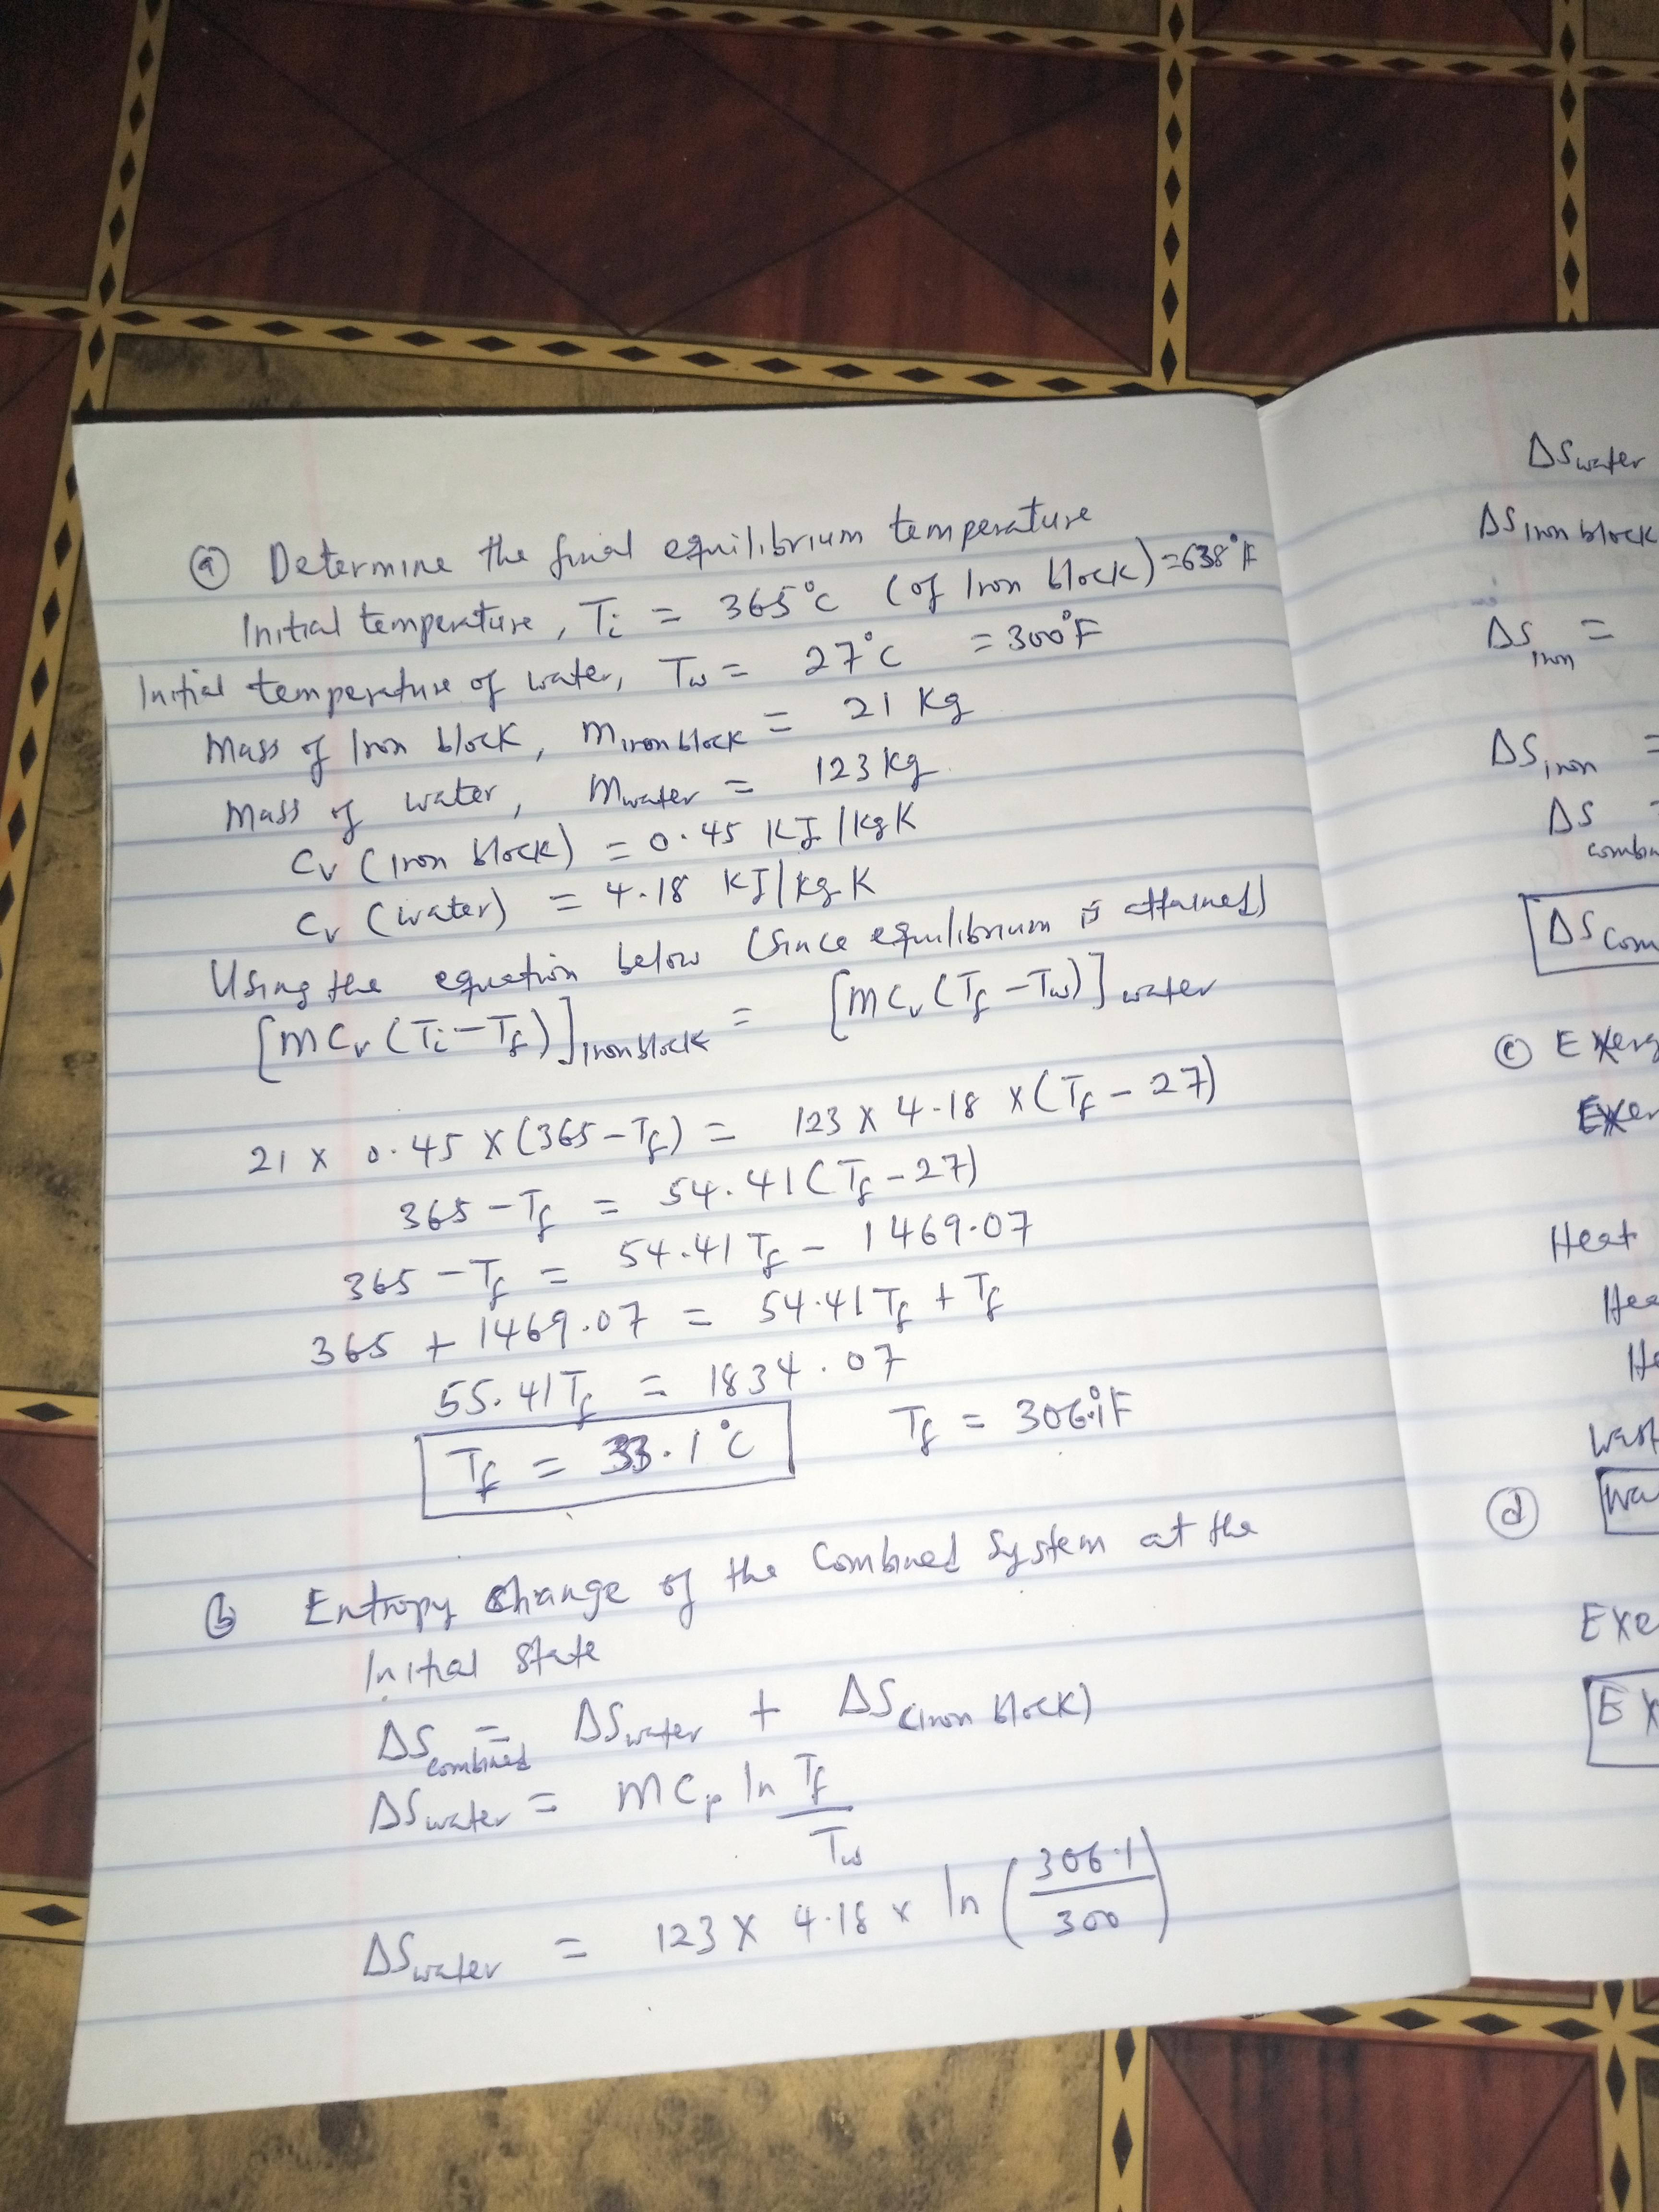 (a) Determine the final equilibrium temperature
Initial temperature, Ti = 365°C (of Iron block) = 638°F
Initial temperature of water, Tw = 27°C = 300°F
Mass of Iron block, m iron block = 21 Kg
Mass of water, Mwater = 123 Kg
Cv (Iron block) = 0.45 KJ/KgK
Cv (water) = 4.18 KJ/Kg K
Using the equation below (Since equilibrium is attained)
[mCv(Ti-Tf)] Iron block = [mCv(Tf-Tw)] water
21 x 0.45 x (365-Tf) = 123 x 4.18 x (Tf - 27)
365 - Tf = 54.41(Tf - 27)
365 - Tf = 54.41Tf - 1469.07
365 + 1469.07 = 54.41Tf + Tf
55.41Tf = 1834.07
Tf = 33.1°C Tf = 306.1°F
(b) Entropy Change of the Combined System at the
Initial State
ΔS combined = ΔSwater + ΔS(iron block)
ΔSwater = MCp ln Tf/Tw
ΔSwater = 123 x 4.18 x ln (306.1/300)
ΔSwater
ΔS iron block
ΔS iron =
ΔS iron =
ΔS
ΔS
(c)
Heat
(d)